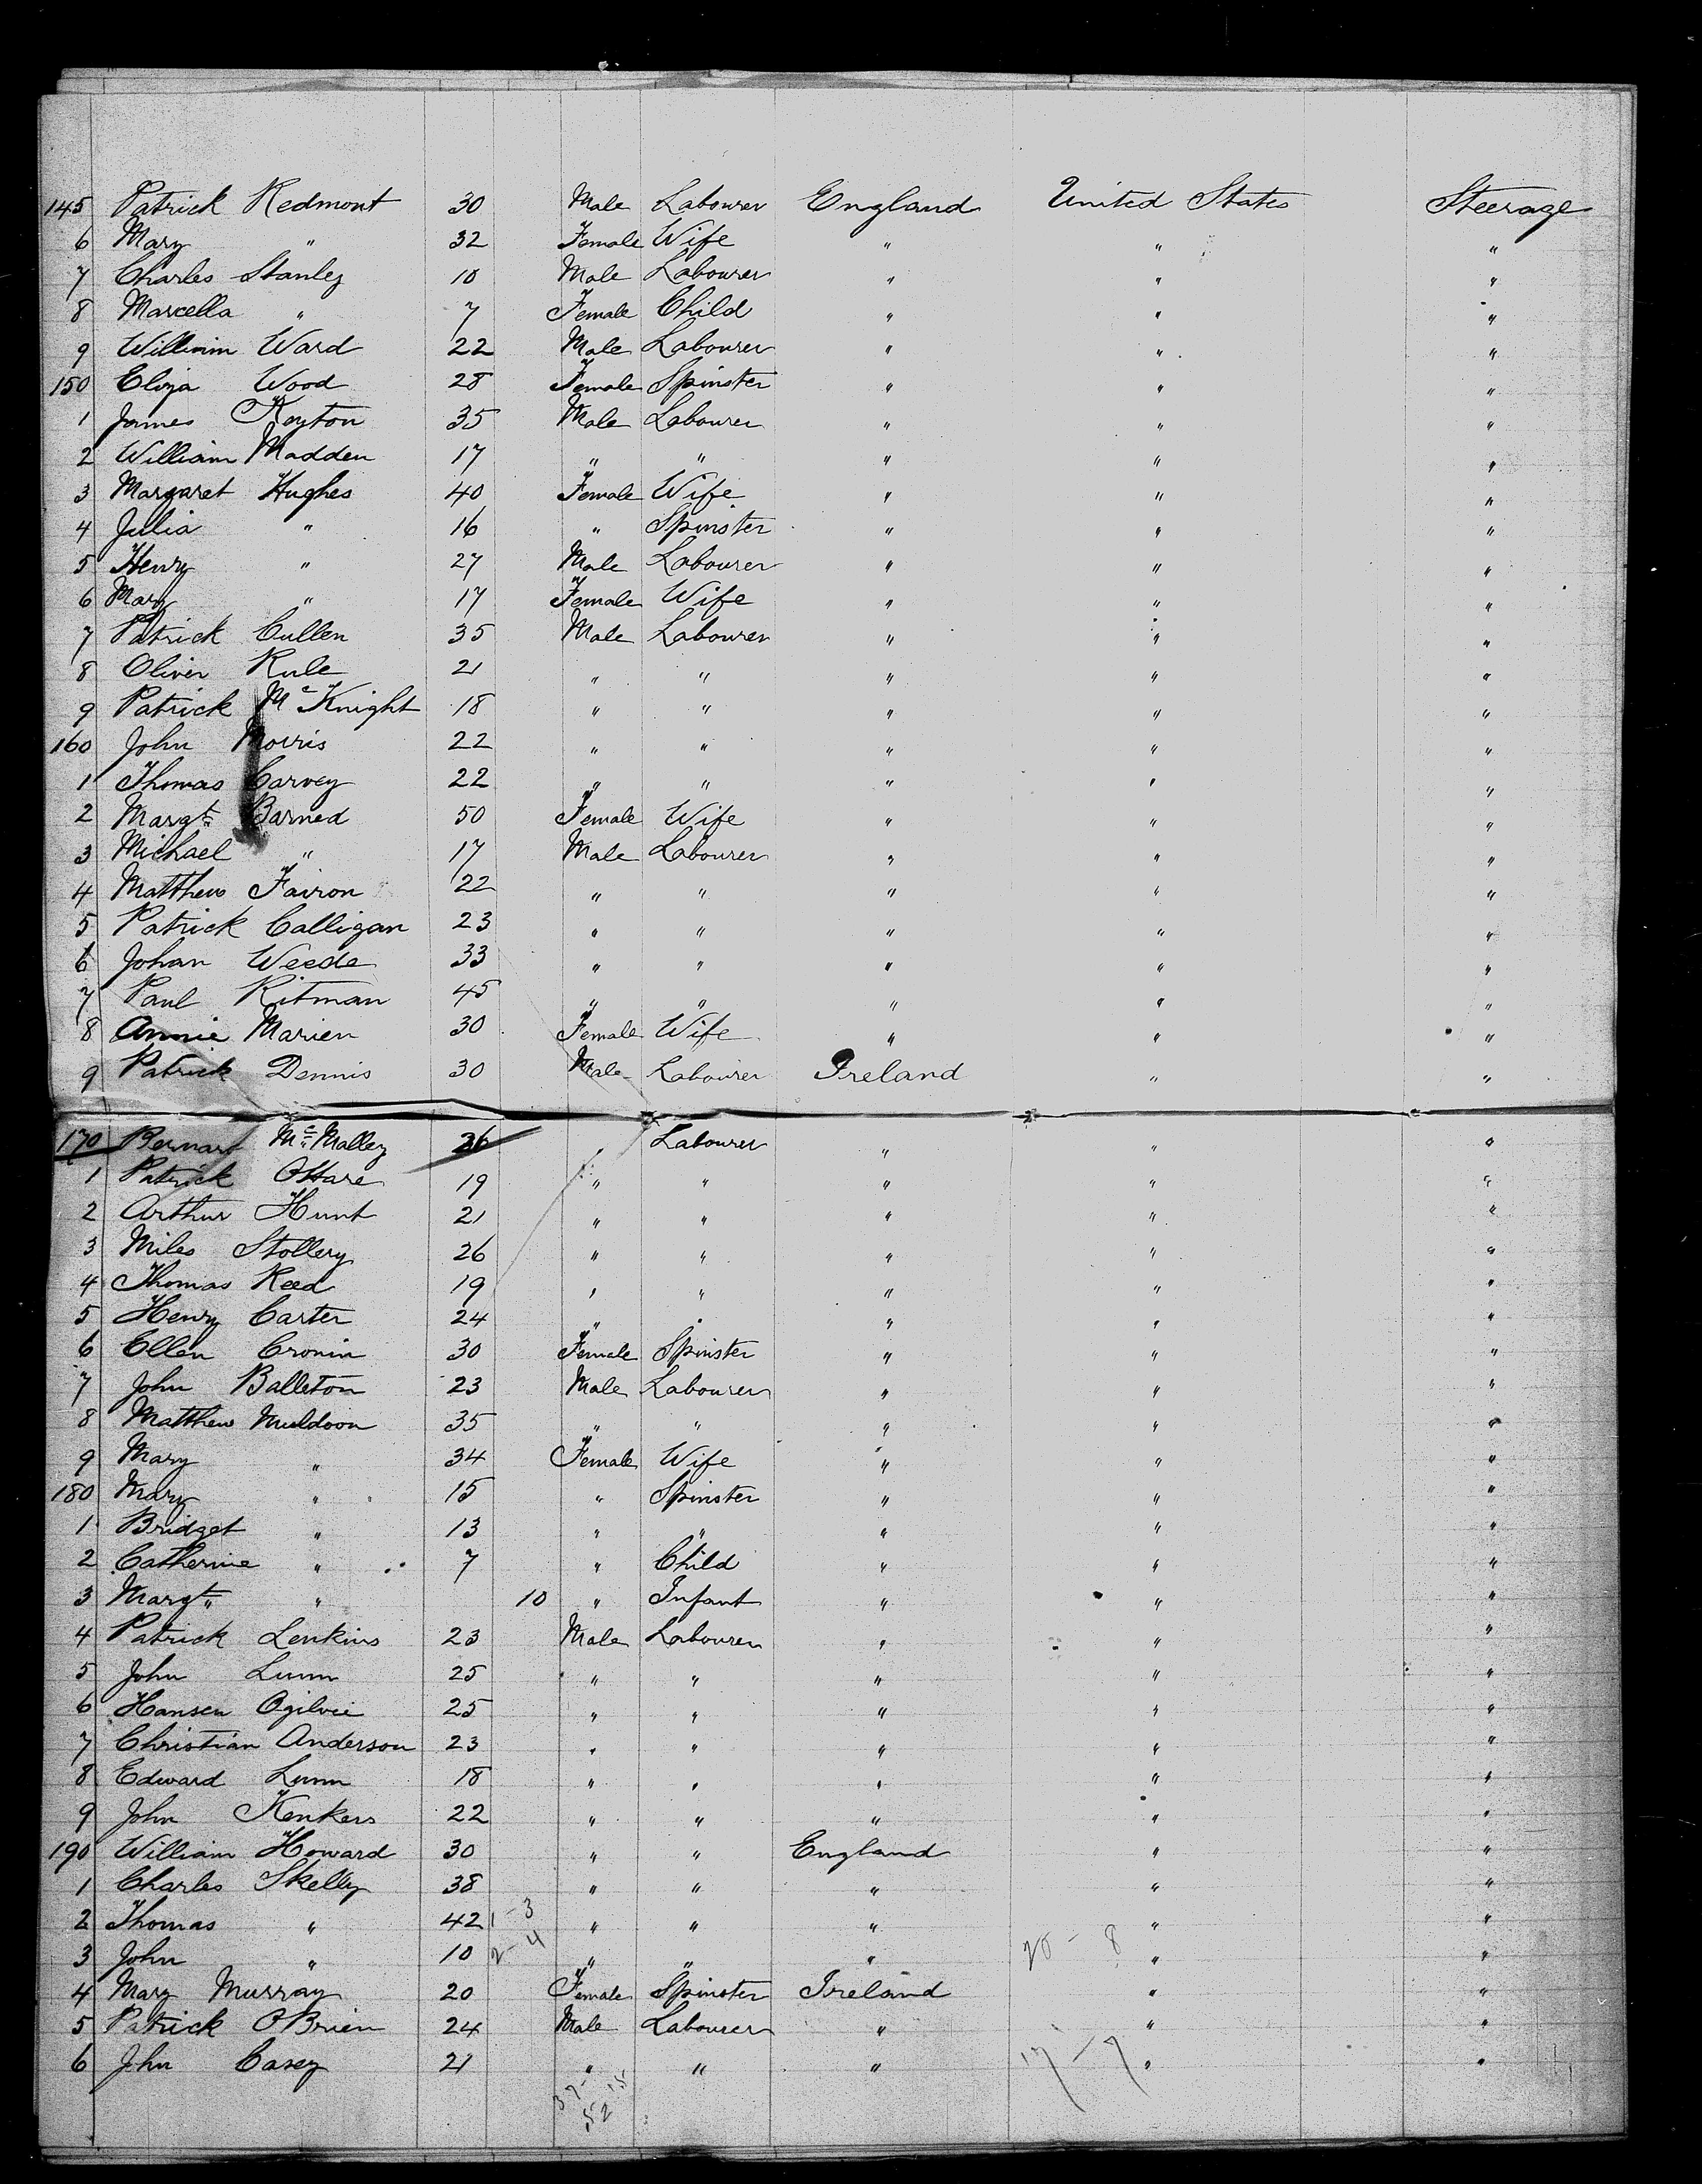 145 Patrick Redmont 30 Male Labourer England United States Steerage
6 Mary " 32 Female Wife " " "
7 Charles Stanley 10 Male Labourer " " "
8 Marcella " 7 Female Child " " "
9 William Ward 22 Male Labourer " " "
150 Eliza Wood 28 Female Spinster " " "
1 James Royton 35 Male Labourer " " "
2 William Madden 17 " " " " "
3 Margaret Hughes 40 Female Wife " " "
4 Julia " 16 " Spinster " " "
5 Henry " 27 Male Labourer " " "
6 Mary " 17 Female Wife " " "
7 Patrick Cullen 35 Male Labourer " " "
8 Oliver Rule 21 " " " " "
9 Patrick McKnight 18 " " " " "
160 John Morris 22 " " " " "
1 Thomas Carvey 22 " " " " "
2 Margt Barned 50 Female Wife " " "
3 Michael " 17 Male Labourer " " "
4 Matthew Fairon 22 " " " " "
5 Patrick Calligan 23 " " " " "
6 Johan Weede 33 " " " " "
7 Paul Ritman 45 " " " " "
8 Annie Marien 30 Female Wife " " "
9 Patrick Dennis 30 Male Labourer Ireland " "
170 Bernart McMalley 26 " Labourer " " "
1 Patrick OHare 19 " " " " "
2 Arthur Hunt 21 " " " " "
3 Miles Stollery 26 " " " " "
4 Thomas Reed 19 " " " " "
5 Henry Carter 24 " " " " "
6 Ellen Cronin 30 Female Spinster " " "
7 John Balleton 23 Male Labourer " " "
8 Matthew Muldoon 35 " " " " "
9 Mary " 34 Female Wife " " "
180 Mary " 15 " Spinster " " "
1 Bridget " 13 " " " " "
2 Catherine " 7 " Child " " "
3 Margt " 10 " Infant " " "
4 Patrick Lenkins 23 Male Labourer " " "
5 John Lunn 25 " " " " "
6 Hansen Ogilvie 25 " " " " "
7 Christian Anderson 23 " " " " "
8 Edward Lunn 18 " " " " "
9 John Kenkers 22 " " " " "
190 William Howard 30 " " England " "
1 Charles Skelly 38 " " " " "
2 Thomas " 42 1-3 " " " " "
3 John " 10 2-4 " " " 20-8 " "
4 Mary Murray 20 Female Spinster Ireland " "
5 Patrick OBrien 24 Male Labourer " " "
6 John Casey 21 " " " 17-7 " "